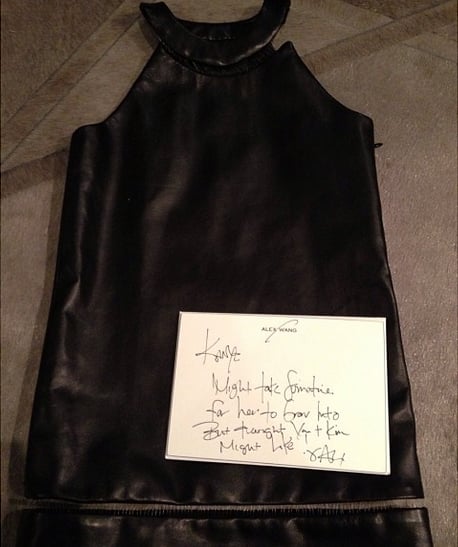 ALEX WANG
Kanye
Might take sometime
for her to Grow into
But thought You + Kim
Might Like
xAx